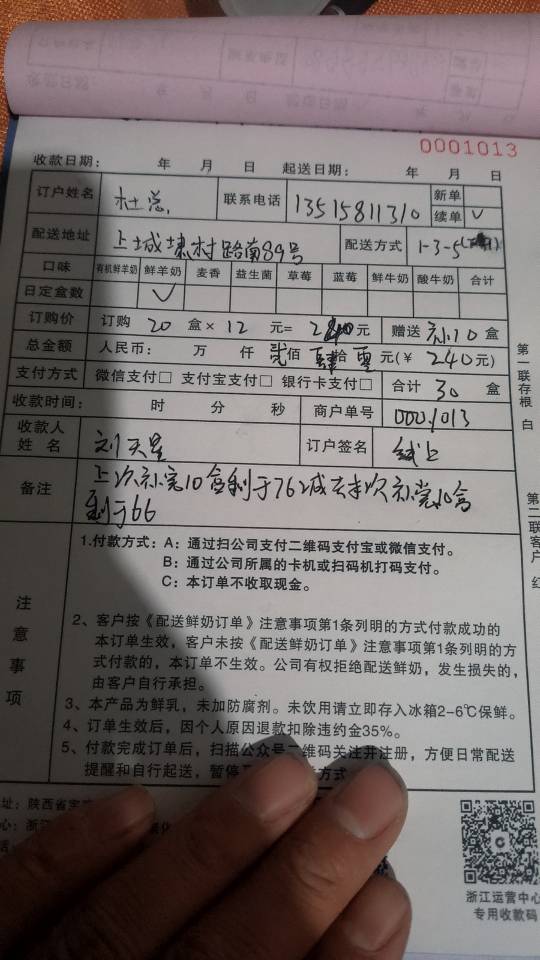 0001013
收款日期： 年 月 日 起送日期： 年 月 日
订户姓名 杜总 联系电话 13515811310 新单
续单 ✓
配送地址 上城 村路南89号 配送方式 1-3-5
口味 有机鲜羊奶 鲜羊奶 麦香 益生菌 草莓 蓝莓 鲜牛奶 酸牛奶 合计
日定盒数 ✓
订购价 订购 20 盒× 12 元= 240元 赠送 补10 盒
总金额 人民币： 万 仟 贰佰 肆拾 零 元(￥ 240元)
支付方式 微信支付□ 支付宝支付□ 银行卡支付□ 合计 30 盒
收款时间： 时 分 秒 商户单号 0001013
收款人姓名 刘天星 订户签名 线上
备注 上次补完10盒剩于76减去本次补完10盒
剩于66
第一联存根 白
第二联客户 红
注意事项
1.付款方式：A：通过扫公司支付二维码支付宝或微信支付。
B：通过公司所属的卡机或扫码机打码支付。
C：本订单不收取现金。
2、客户按《配送鲜奶订单》注意事项第1条列明的方式付款成功的
本订单生效，客户未按《配送鲜奶订单》注意事项第1条列明的方
式付款的，本订单不生效。公司有权拒绝配送鲜奶，发生损失的，
由客户自行承担。
3、本产品为鲜乳，未加防腐剂。未饮用请立即存入冰箱2-6℃保鲜。
4、订单生效后，因个人原因退款扣除违约金35%。
5、付款完成订单后，扫描公众号二维码关注并注册，方便日常配送
提醒和自行起送，暂停
方式
址：陕西省宝
心：浙江
浙江运营中心
专用收款码